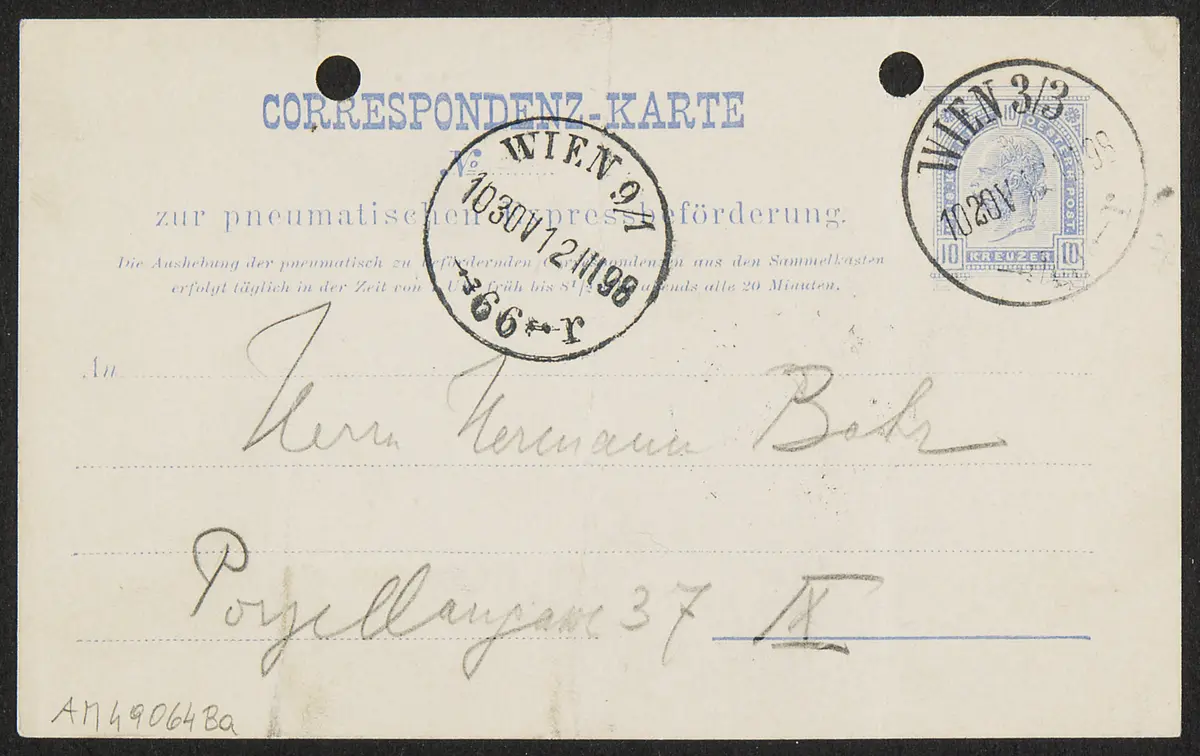 CORRESPONDENZ-KARTE
No
zur pneumatischen Expressbeförderung.
Die Aushebung der pneumatisch zu befördernden Correspondenzen aus den Sammelkasten
erfolgt täglich in der Zeit von Uhr früh bis 8½ Abends alle 20 Minuten.
WIEN 9/1
1030V 12 III 98
66 r
WIEN 3/3
1020V 98
r
10
OESTERR. POST.
10 KREUZER 10
An
Herrn Hermann Bahr
Porzellangasse 37 IX
AM49064Ba